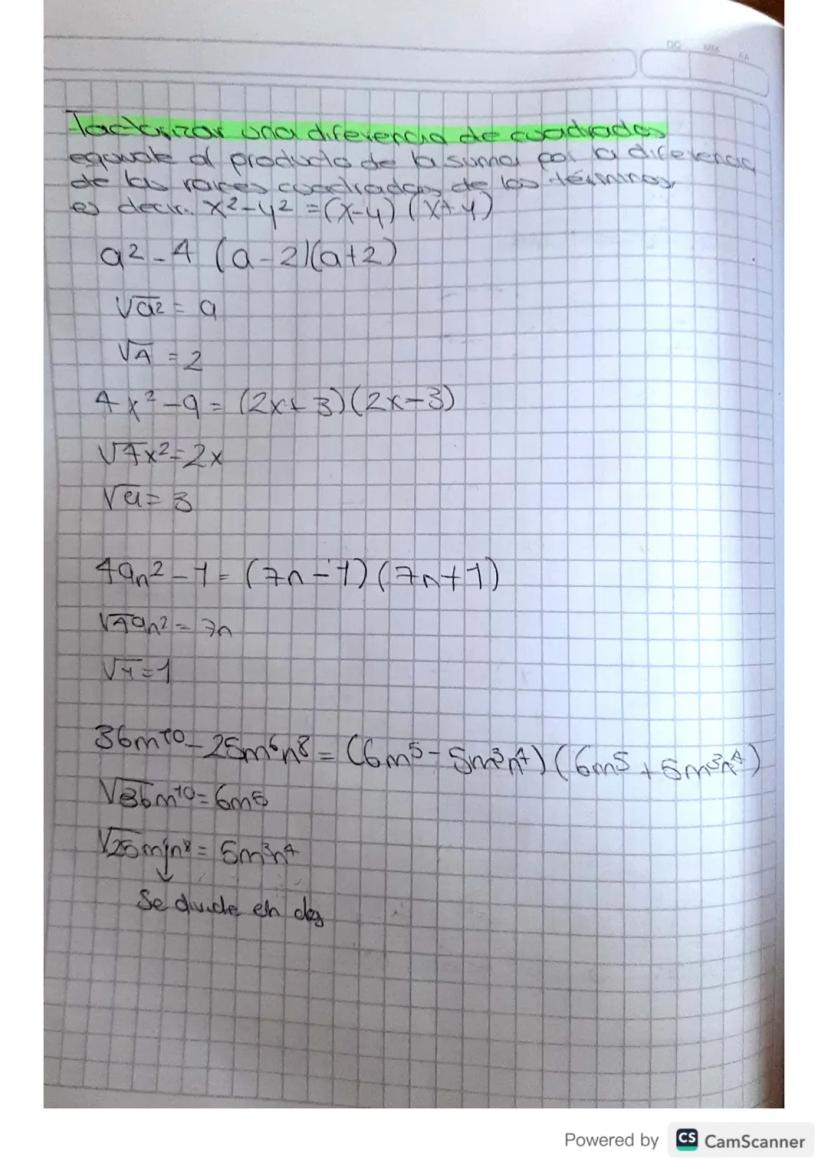 DD MM AA
Factorizar una diferencia de cuadrados
equivale al producto de la suma por la diferencia
de las raices cuadradas de los términos,
es decir. x² - y² = (x-y) (x+y)
a² - 4 (a - 2)(a+2)
√a² = a
√4 = 2
4x² - 9 = (2x+3)(2x-3)
√4x² = 2x
√9 = 3
49n² - 1 = (7n - 1)(7n+1)
√49n² = 7n
√1 = 1
36m¹⁰ - 25m⁶n⁸ = (6m⁵ - 5m³n⁴) (6m⁵ + 5m³n⁴)
√36m¹⁰ = 6m⁵
√25m⁶n⁸ = 5m³n⁴
↓
Se divide en dos
Powered by CS CamScanner